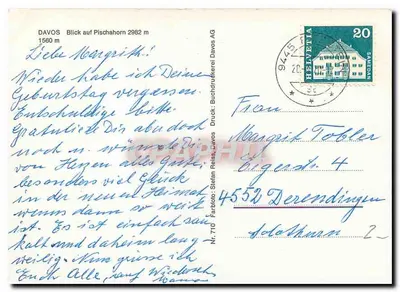 DAVOS Blick auf Pischahorn 2982 m
1560 m
Liebe Margrith!
Wieder habe ich Deinen
Geburtstag vergessen.
Entschuldige bitte.
Gratuliere Dir aber doch
noch u. wünsche Dir
von Herzen alles Gute
besonders viel Glück
in der neuen Heimat
wenns dann so weit
ist. Es ist einfach
kalt und daheim lang-
weilig. Nun grüsse ich
Euch Alle, auf Wiedersehn
Nr. 710 Farbfoto: Stefan Reiss, Davos Druck: Buchdruckerei Davos AG
9445
HELVETIA
20
SAMEDAN
Frau
Margrit Tobler
Eigerstr. 4
4552 Derendingen
Solothurn
2-